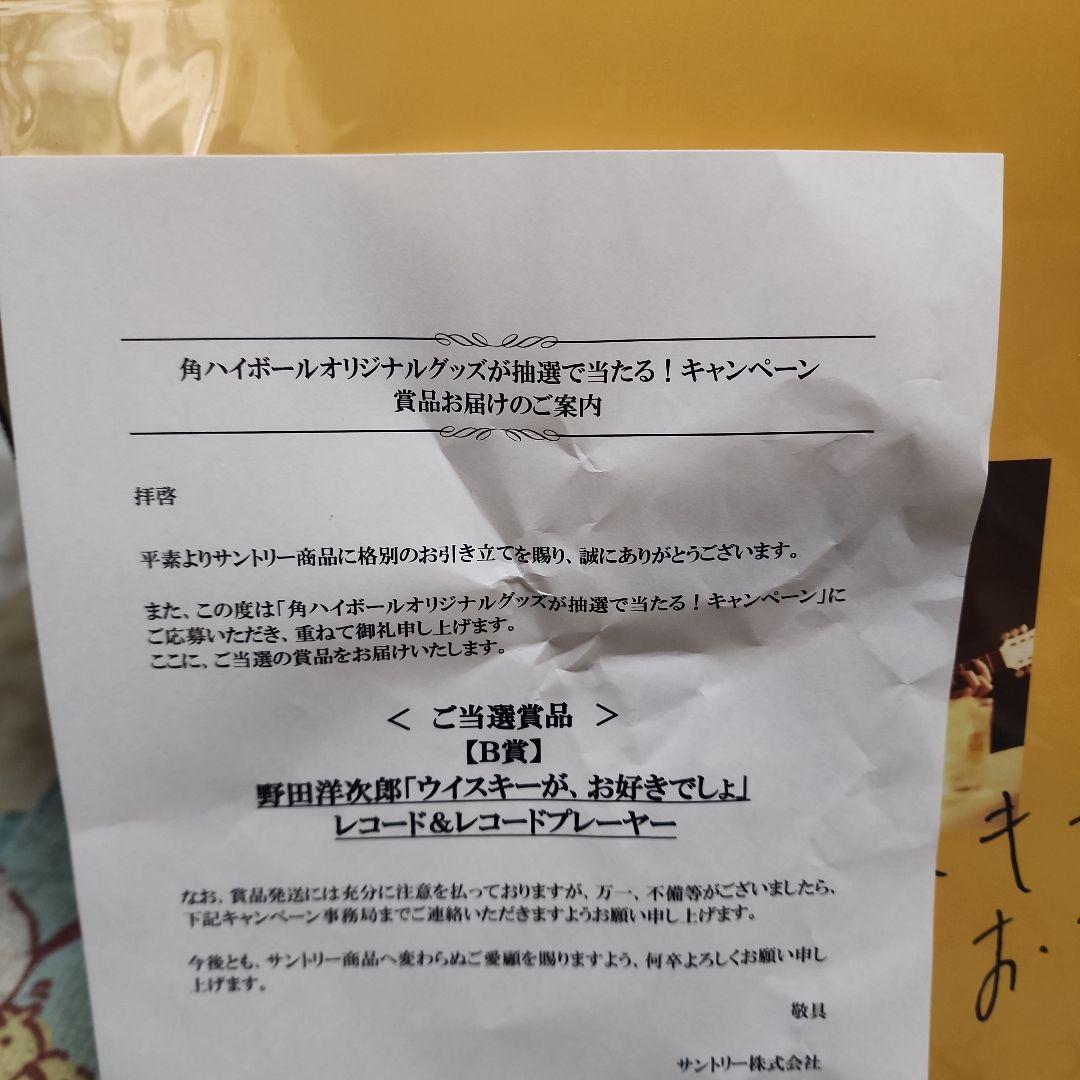 角ハイボールオリジナルグッズが抽選で当たる！キャンペーン
賞品お届けのご案内
拝啓
平素よりサントリー商品に格別のお引き立てを賜り、誠にありがとうございます。
また、この度は「角ハイボールオリジナルグッズが抽選で当たる！キャンペーン」に
ご応募いただき、重ねて御礼申し上げます。
ここに、ご当選の賞品をお届けいたします。
＜ ご当選賞品 ＞
【B賞】
野田洋次郎「ウイスキーが、お好きでしょ」
レコード＆レコードプレーヤー
なお、賞品発送には充分に注意を払っておりますが、万一、不備等がございましたら、
下記キャンペーン事務局までご連絡いただきますようお願い申し上げます。
今後とも、サントリー商品へ変わらぬご愛顧を賜りますよう、何卒よろしくお願い申し
上げます。
敬具
サントリー株式会社
キ
お